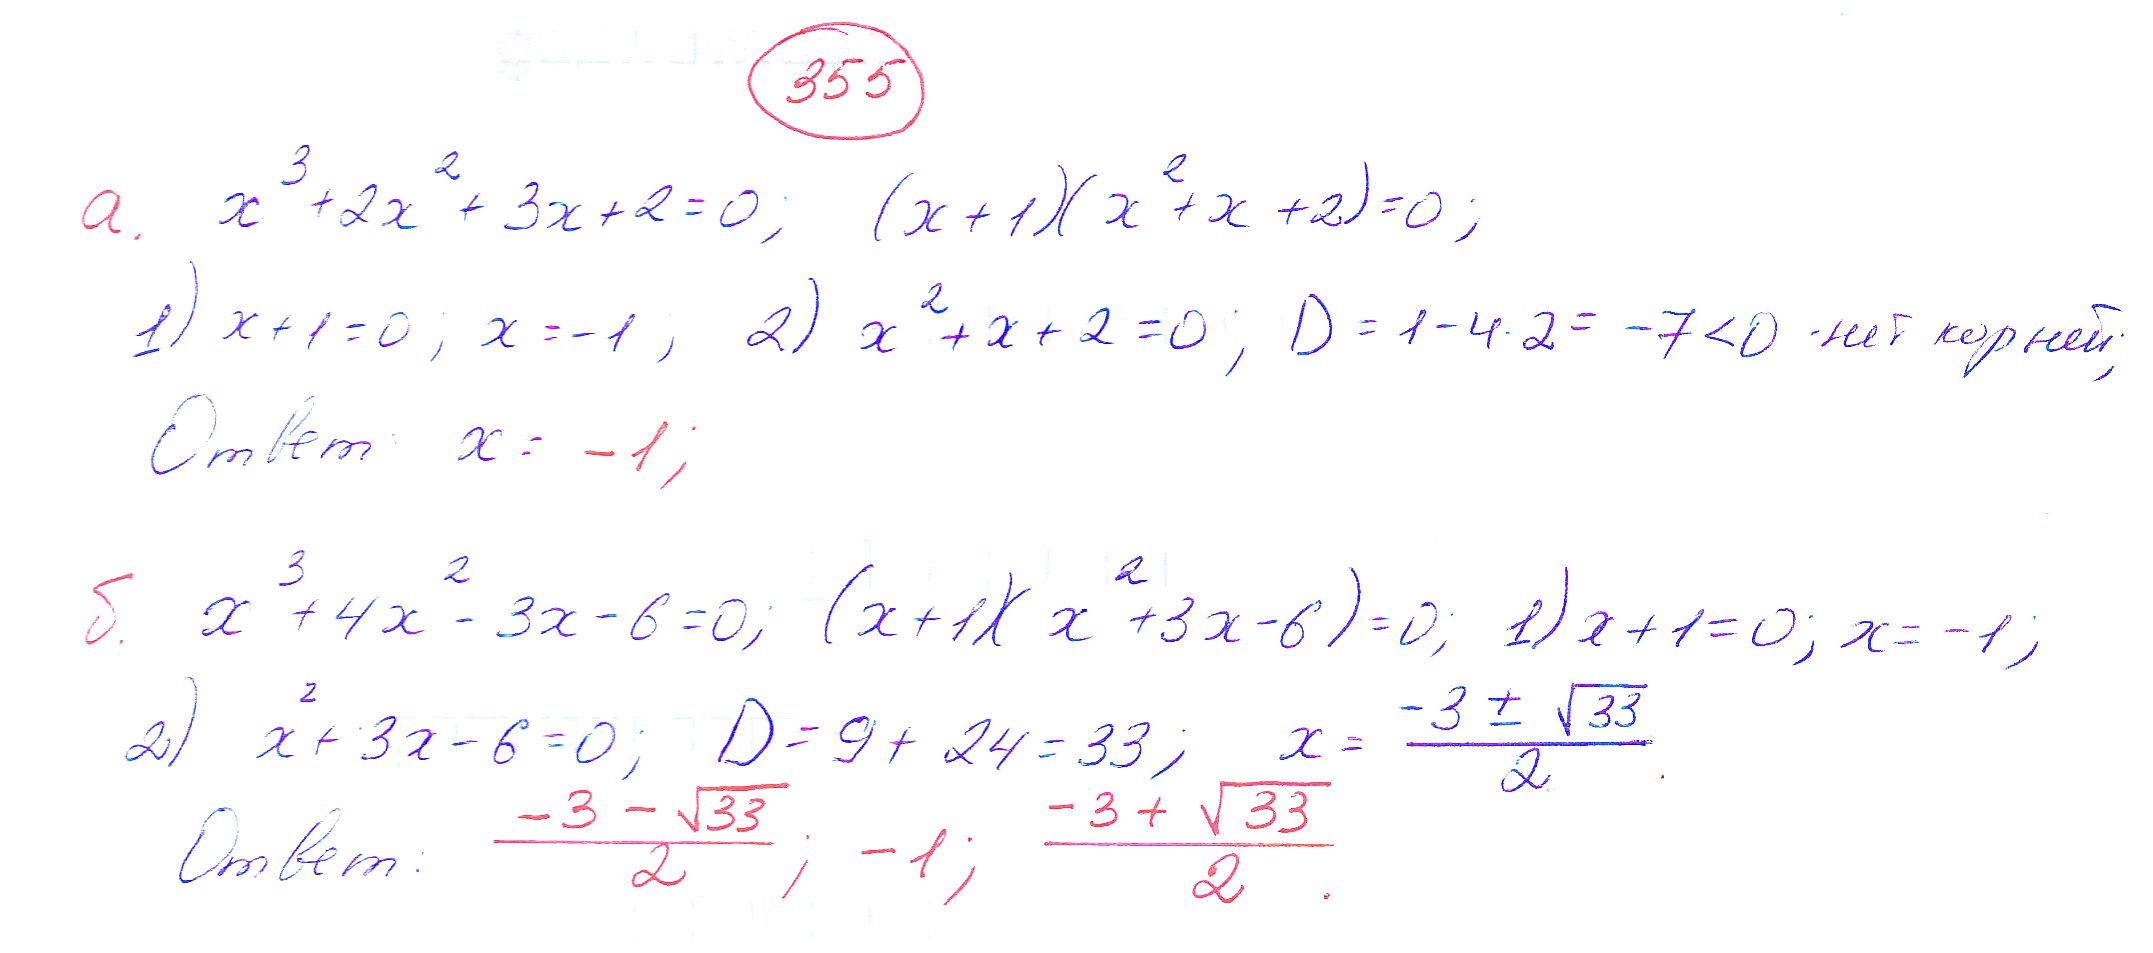 355
а. x³+2x²+3x+2=0; (x+1)(x²+x+2)=0;
1) x+1=0; x=-1; 2) x²+x+2=0; D=1-4·2=-7<0 -нет корней;
Ответ: x=-1;
б. x³+4x²-3x-6=0; (x+1)(x²+3x-6)=0; 1) x+1=0; x=-1;
2) x²+3x-6=0; D=9+24=33; x=(-3±√33)/2.
Ответ: (-3-√33)/2; -1; (-3+√33)/2.